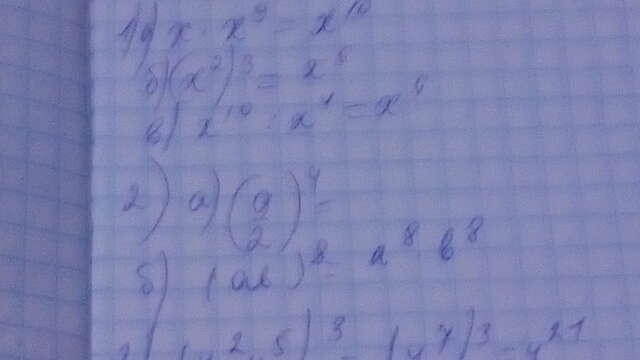 1) а) x · x⁹ = x¹⁰
б) (x²)³ = x⁶
в) x¹⁰ : x⁴ = x⁶
2) а) (a/2)⁴ =
б) (ab)⁸ = a⁸ b⁸
(x² · x⁵)³ = (x⁷)³ = x²¹